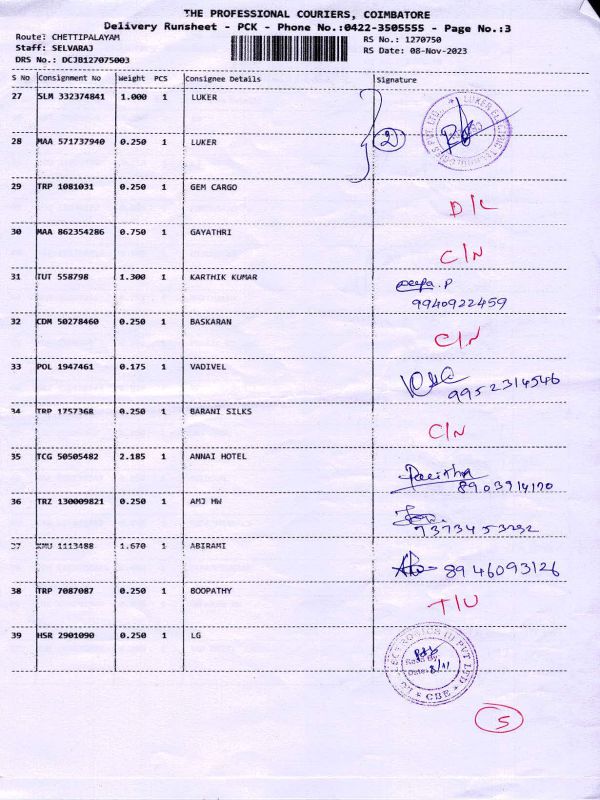 THE PROFESSIONAL COURIERS, COIMBATORE
Delivery Runsheet - PCK - Phone No.:0422-3505555 - Page No.:3
Route: CHETTIPALAYAM RS No.: 1270750
Staff: SELVARAJ RS Date: 08-Nov-2023
DRS No.: DCJB127075003
S No Consignment No Weight PCS Consignee Details Signature
27 SLM 332374841 1.000 1 LUKER
2
28 MAA 571737940 0.250 1 LUKER
29 TRP 1081031 0.250 1 GEM CARGO
D/L
30 MAA 862354286 0.750 1 GAYATHRI
C/N
31 TUT 558798 1.300 1 KARTHIK KUMAR
9940922459
32 CDM 50278460 0.250 1 BASKARAN
C/N
33 POL 1947461 0.175 1 VADIVEL
9952314546
34 TRP 1757368 0.250 1 BARANI SILKS
C/N
35 TCG 50505482 2.185 1 ANNAI HOTEL
8903914170
36 TRZ 130009821 0.250 1 AMJ HW
7373453232
37 KMU 1113488 1.670 1 ABIRAMI
8946093126
38 TRP 7087087 0.250 1 BOOPATHY
T/U
39 HSR 2901090 0.250 1 LG
Date: 8/11
CBE
5